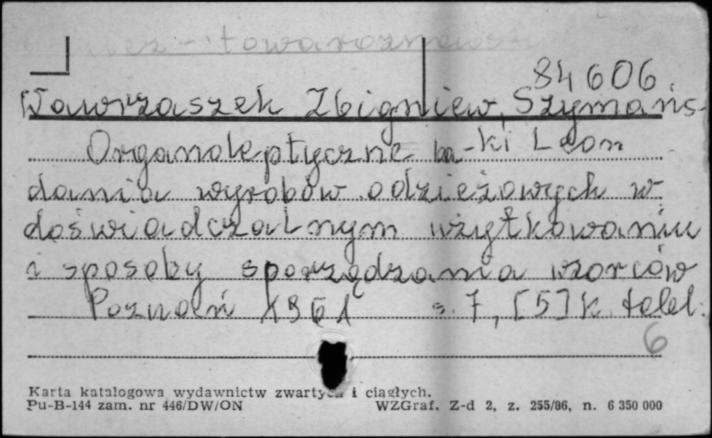 towarozn
84606
Wawrzaszek Zbigniew, Szymańs-
Organoleptyczne ba- ki Leon
dania wyrobów odzieżowych w
doświadczalnym użytkowaniu
i sposoby sporządzania wzorców
Poznań 1961 s. 7, [5] k. tabl.
6
Karta katalogowa wydawnictw zwartych i ciągłych.
Pu-B-144 zam. nr 446/DW/ON WZGraf. Z-d 2, z. 255/86, n. 6 350 000